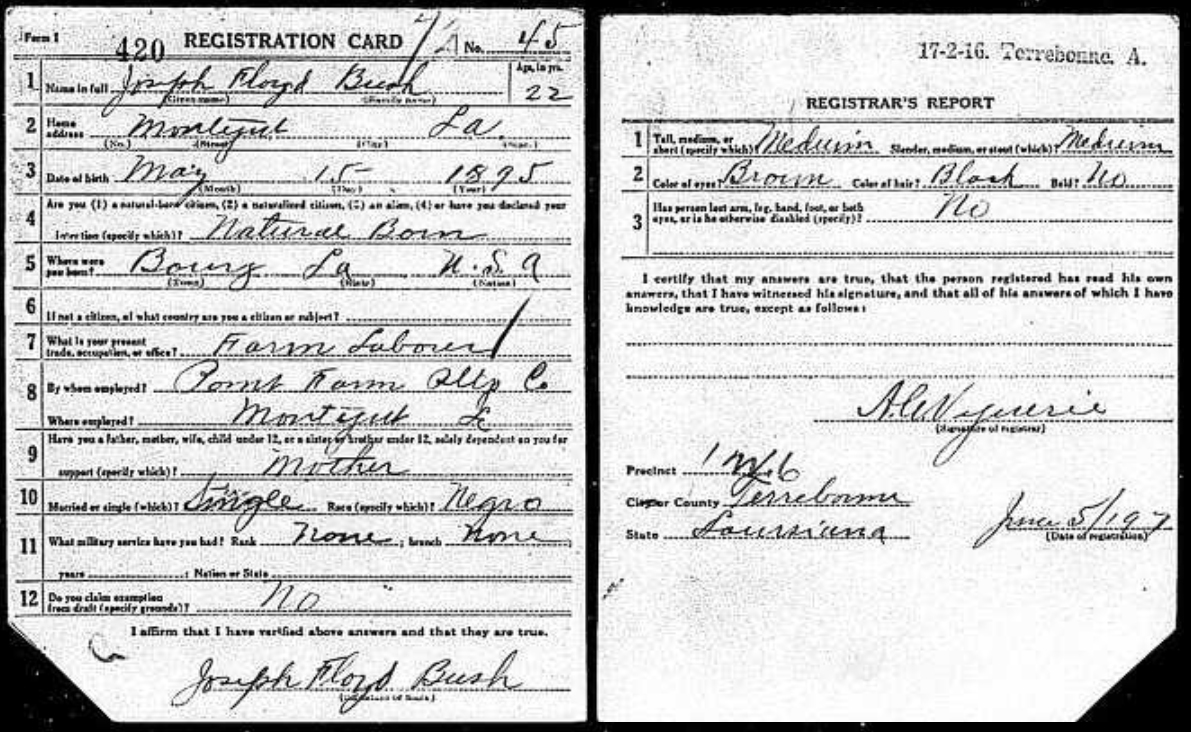 Form 1 420 REGISTRATION CARD No. 45
1 Name in full Joseph Floyd Bush Age, in yrs. 22
(Given name) (Family name)
2 Home address Montegut La.
(No.) (Street) (City) (State)
3 Date of birth May 15 1895
(Month) (Day) (Year)
4 Are you (1) a natural-born citizen, (2) a naturalized citizen, (3) an alien, (4) or have you declared your
intention (specify which)? Natural Born
5 Where were you born? Bourg La U.S.A
(Town) (State) (Nation)
6 If not a citizen, of what country are you a citizen or subject?
7 What is your present trade, occupation, or office? Farm Laborer
8 By whom employed? Point Farm Co
Where employed? Montegut
9 Have you a father, mother, wife, child under 12, or a sister or brother under 12, solely dependent on you for
support (specify which)? Mother
10 Married or single (which)? Single Race (specify which)? Negro
11 What military service have you had? Rank None ; branch None
years ; Nation or State
12 Do you claim exemption from draft (specify grounds)? No
I affirm that I have verified above answers and that they are true.
Joseph Floyd Bush
(Signature or mark)
17-2-16. Terrebonne. A.
REGISTRAR'S REPORT
1 Tall, medium, or short (specify which)? Medium Slender, medium, or stout (which)? Medium
2 Color of eyes? Brown Color of hair? Black Bald? No
3 Has person lost arm, leg, hand, foot, or both eyes, or is he otherwise disabled (specify)? No
I certify that my answers are true, that the person registered has read his own
answers, that I have witnessed his signature, and that all of his answers of which I have
knowledge are true, except as follows:
A.C. Viguerie
(Signature of registrar)
Precinct 1
City or County Terrebonne
State Louisiana June 5/197
(Date of registration)